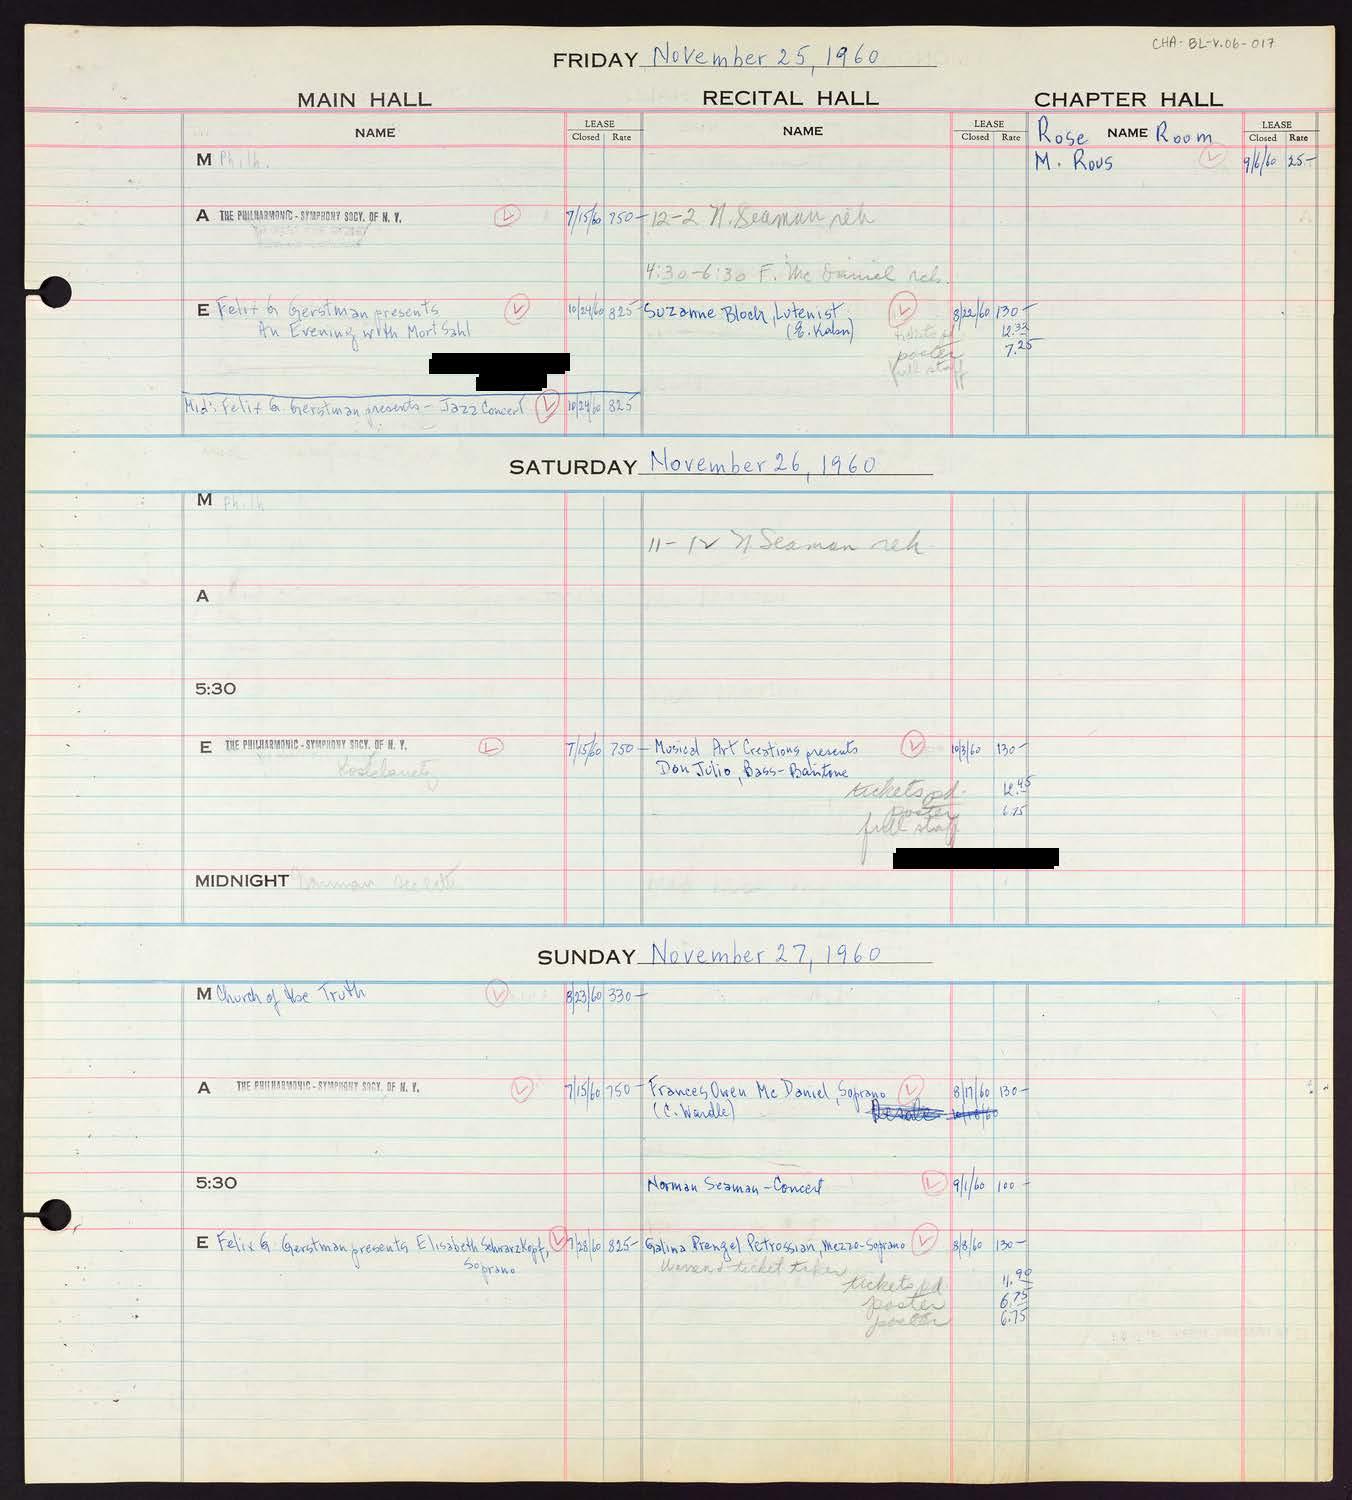 CHA-BL-V.06-017
FRIDAY November 25, 1960
MAIN HALL RECITAL HALL CHAPTER HALL
NAME LEASE Closed Rate NAME LEASE Closed Rate Rose NAME Room LEASE Closed Rate
M Philh. M. Rous 9/6/60 25-
A THE PHILHARMONIC-SYMPHONY SOCY. OF N. Y. 7/15/60 750- 12-2 N. Seaman reh
4:30-6:30 F. Mc Daniel reh.
E Felix G. Gerstman presents 10/24/60 825- Suzanne Bloch, Lutenist 8/22/60 130-
An Evening with Mort Sahl (E. Kahn)
tickets pd 12.32
poster 7.25
full staff
Mid: Felix G. Gerstman presents - Jazz Concert 10/24/60 825
SATURDAY November 26, 1960
M Philh
11-12 N Seaman reh
A
5:30
E THE PHILHARMONIC-SYMPHONY SOCY. OF N. Y. 7/15/60 750- Musical Art Creations presents 10/3/60 130-
Kostelanetz Don Julio, Bass-Baritone
tickets pd. 12.45
poster 6.75
full staff
MIDNIGHT
SUNDAY November 27, 1960
M Church of the Truth 8/23/60 330-
A THE PHILHARMONIC-SYMPHONY SOCY. OF N. Y. 7/15/60 750- Frances Owen Mc Daniel, Soprano 8/17/60 130-
(C. Wardle)
5:30 Norman Seaman - Concert 9/1/60 100-
E Felix G. Gerstman presents Elisabeth Schwarzkopf, 7/28/60 825- Galina Prengel Petrossian, Mezzo-Soprano 8/8/60 130-
Soprano
ticket taker
tickets pd 11.90
poster 6.75
poster 6.75